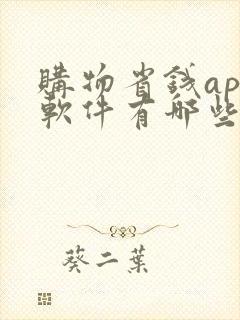 購物省錢ap
軟件有哪些
葵二葉